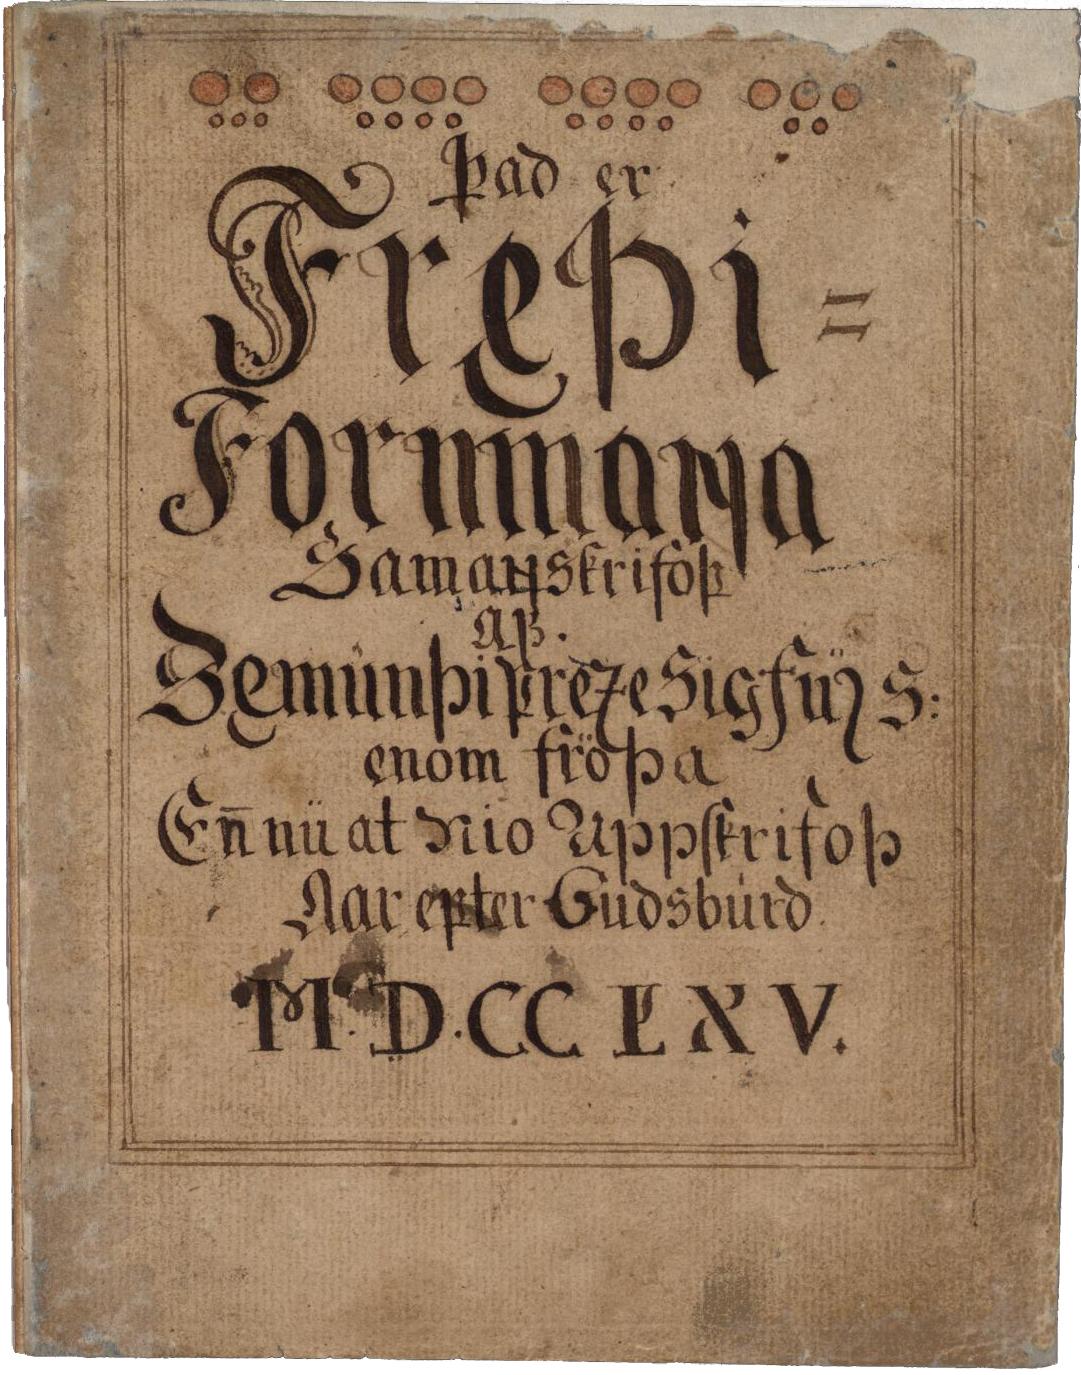 Þad er
Fręþi=
Fornmaɴa
Samaɴskrifoþ
Aꝼ.
Sęmünþi preste Sigfüs S:
enom fröþa
En̄ nü at nio Uppskrifoþ
Aar epter Gudsbürd
M.D.CCLXV.